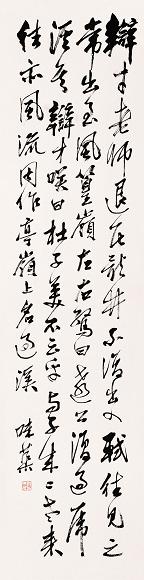 辯才老師退居龍井不復出入軾往見之
常出至風篁嶺左右驚曰遠公復過虎
溪矣辯才咲曰杜子美不云乎与子成二老来
往亦風流因作亭嶺上名過溪